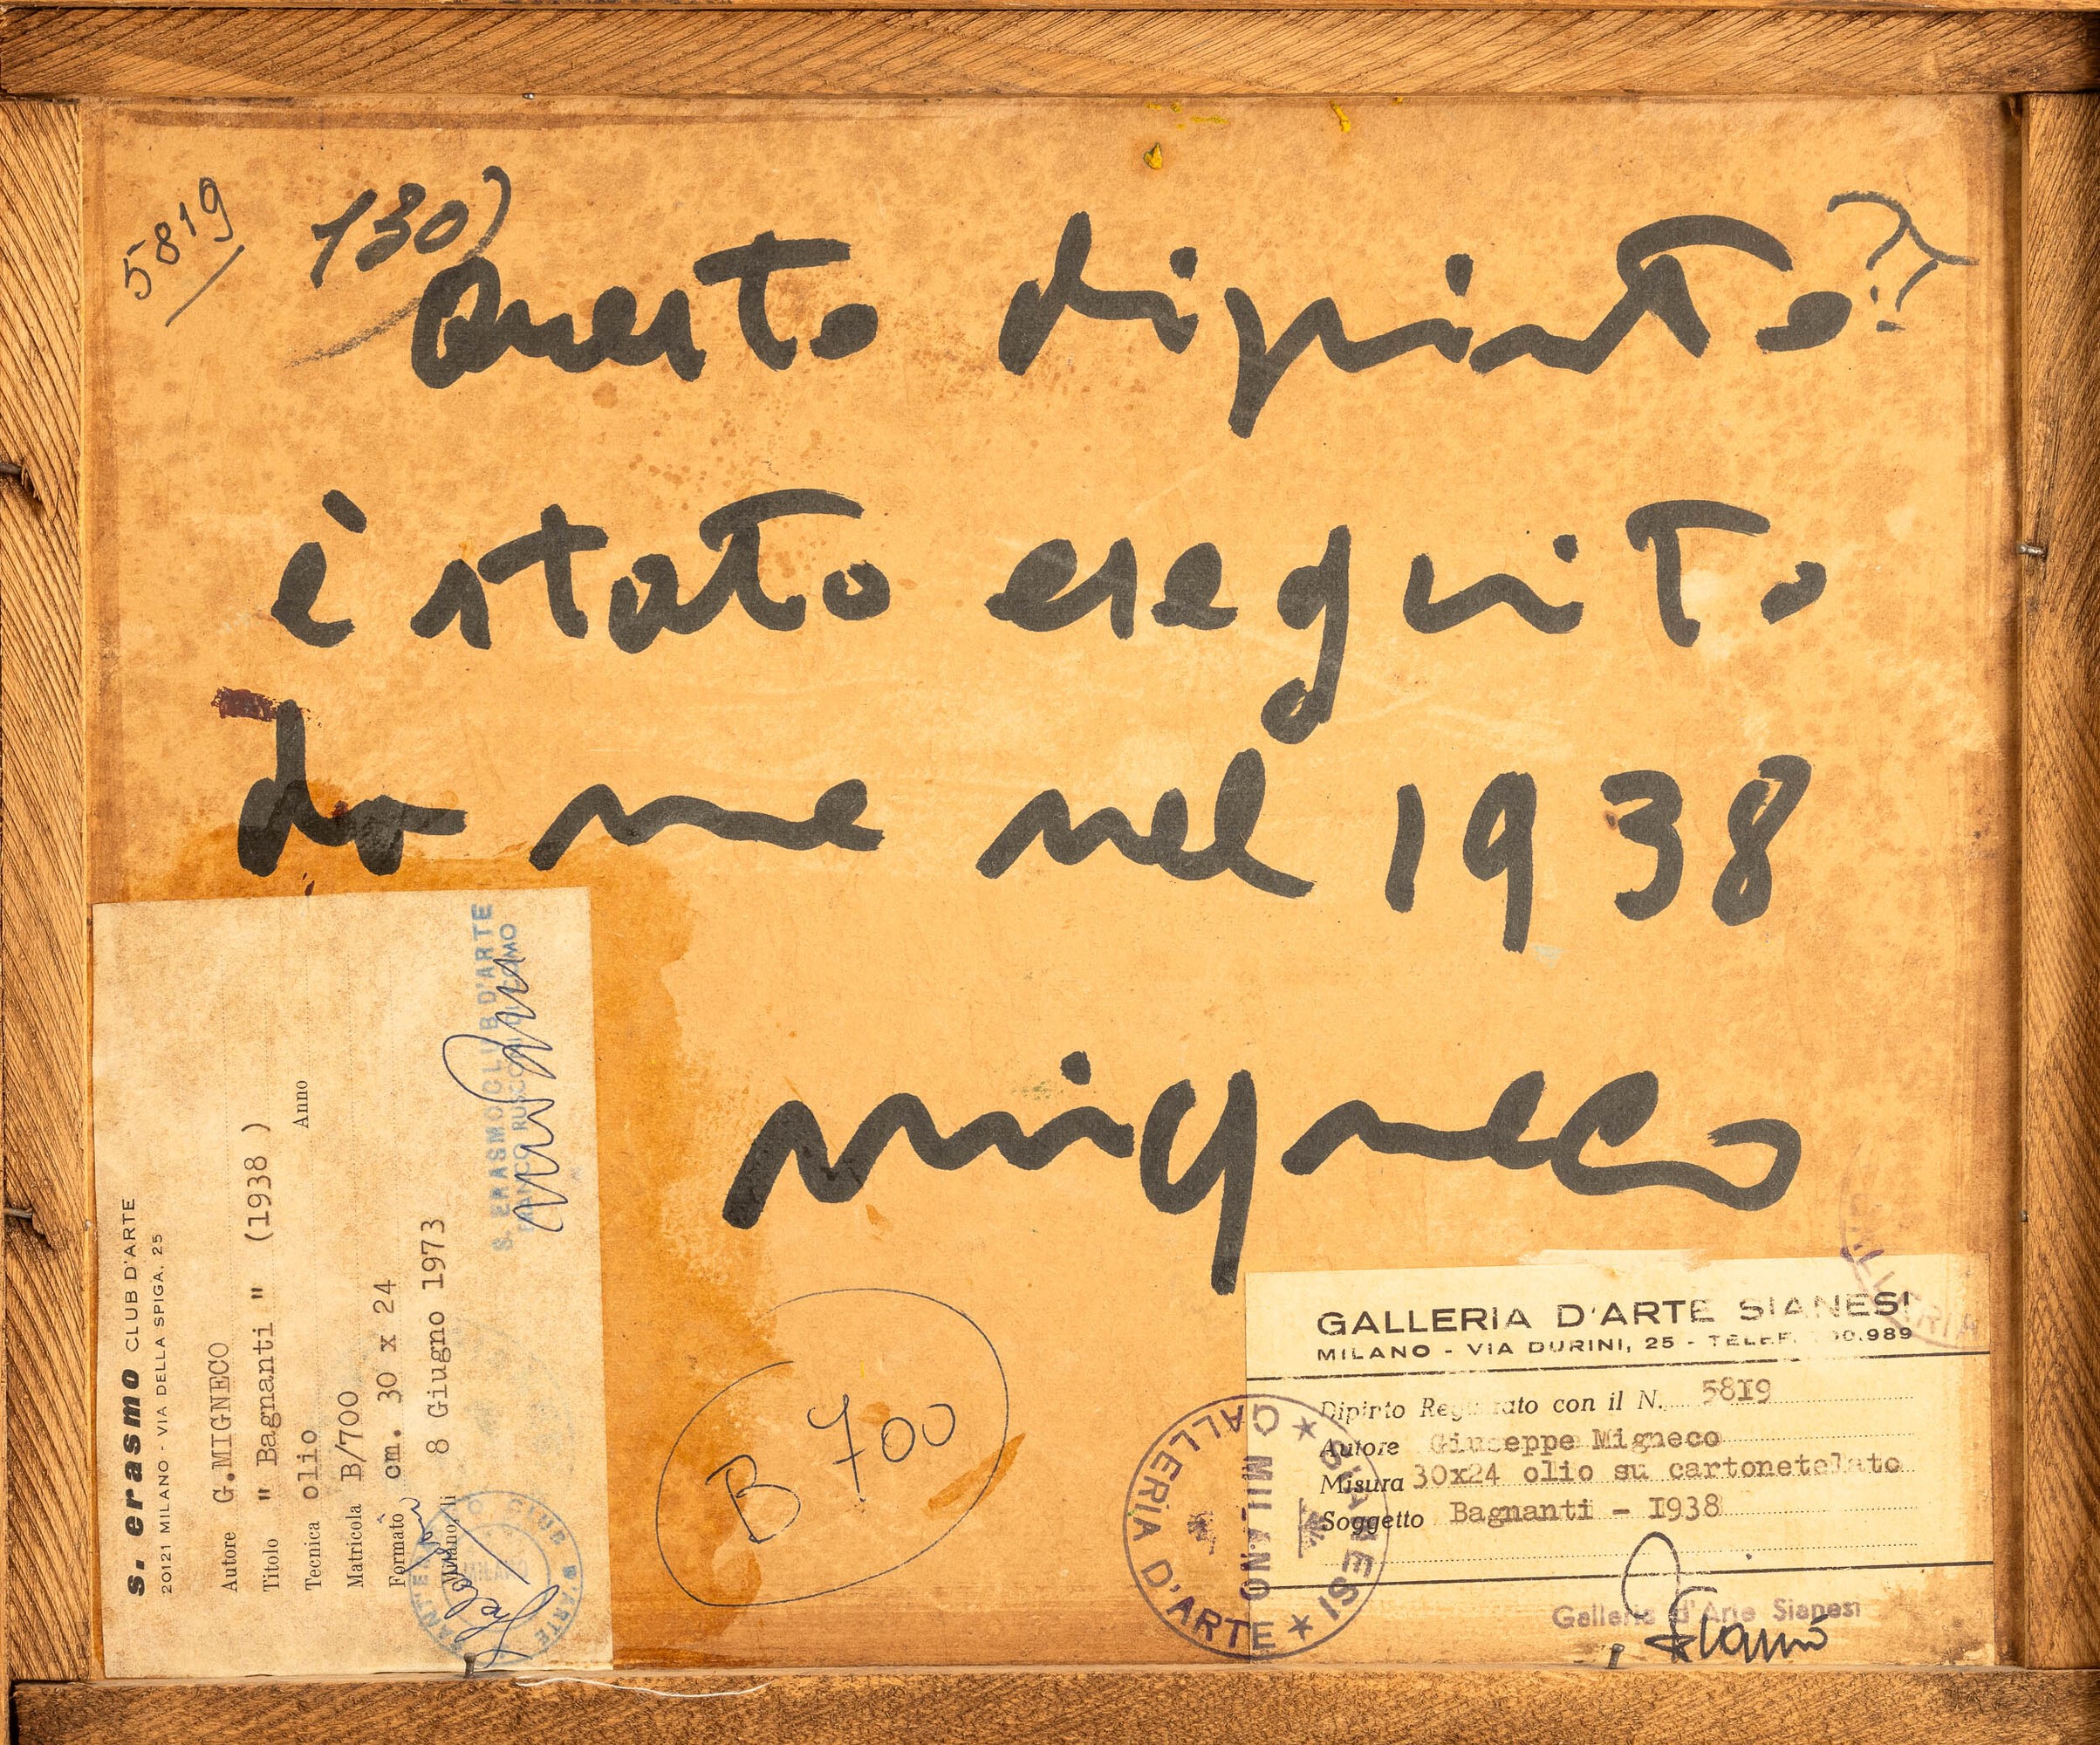 5819
130)
Questo dipinto
??
è stato eseguito
da me nel 1938
Migneco
s. erasmo CLUB D'ARTE
20121 MILANO - VIA DELLA SPIGA, 25
Autore G.MIGNECO
Titolo " Bagnanti " (1938 )
Tecnica olio Anno
Matricola B/700
Formato cm. 30 x 24
Milano, li 8 Giugno 1973
S. ERASMO CLUB D'ARTE
SANT'ERASMO CLUB D'ARTE
MILANO
B 700
GALLERIA D'ARTE SIANESI
MILANO - VIA DURINI, 25 - TELEF. 989
Dipinto Registrato con il N. 5819
Autore Giuseppe Migneco
Misura 30x24 olio su cartonetelato
Soggetto Bagnanti - I938
Galleria d'Arte Sianesi
GALLERIA D'ARTE ★ SIANESI ★
MILANO